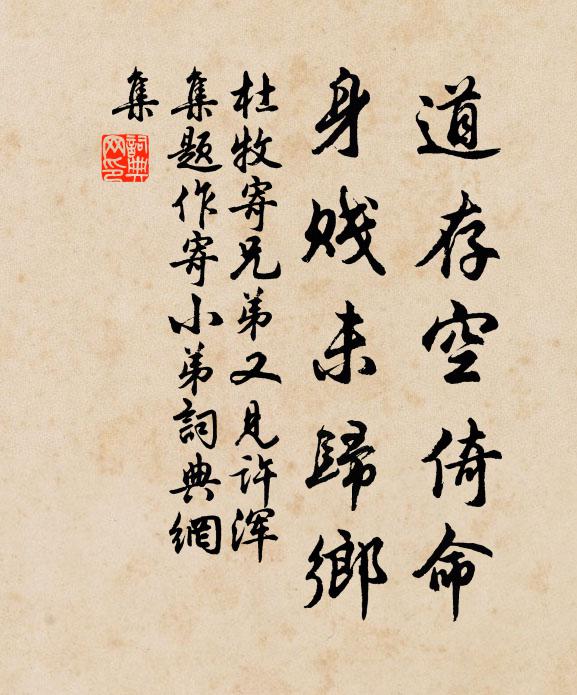 道存空倚命
身贱未歸鄉
杜牧寄兄弟又見许浑
集题作寄小弟詞典網
集
詞典網印